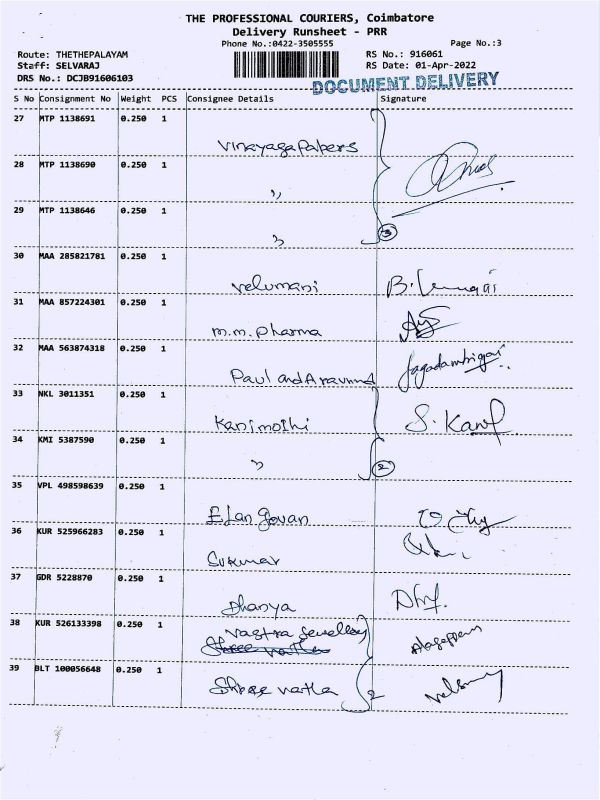 THE PROFESSIONAL COURIERS, Coimbatore
Delivery Runsheet - PRR
Phone No.:0422-3505555
Page No.:3
Route: THETHEPALAYAM
RS No.: 916061
Staff: SELVARAJ
RS Date: 01-Apr-2022
DRS No.: DCJB91606103
DOCUMENT DELIVERY
S No Consignment No Weight PCS Consignee Details Signature
27 MTP 1138691 0.250 1
Vinayaga Papers
28 MTP 1138690 0.250 1
"
29 MTP 1138646 0.250 1
" 3
30 MAA 285821781 0.250 1
Velumani
31 MAA 857224301 0.250 1
M.M. Pharma
32 MAA 563874318 0.250 1
Paul and Aravind
33 NKL 3011351 0.250 1
Kanimozhi S. Kani
34 KMI 5387590 0.250 1
" 2
35 VPL 498598639 0.250 1
Elangovan
36 KUR 525966283 0.250 1
Sukumar
37 GDR 5228870 0.250 1
Dhanya
38 KUR 526133398 0.250 1
Vastra Jewellery
39 BLT 100056648 0.250 1
Shree 2